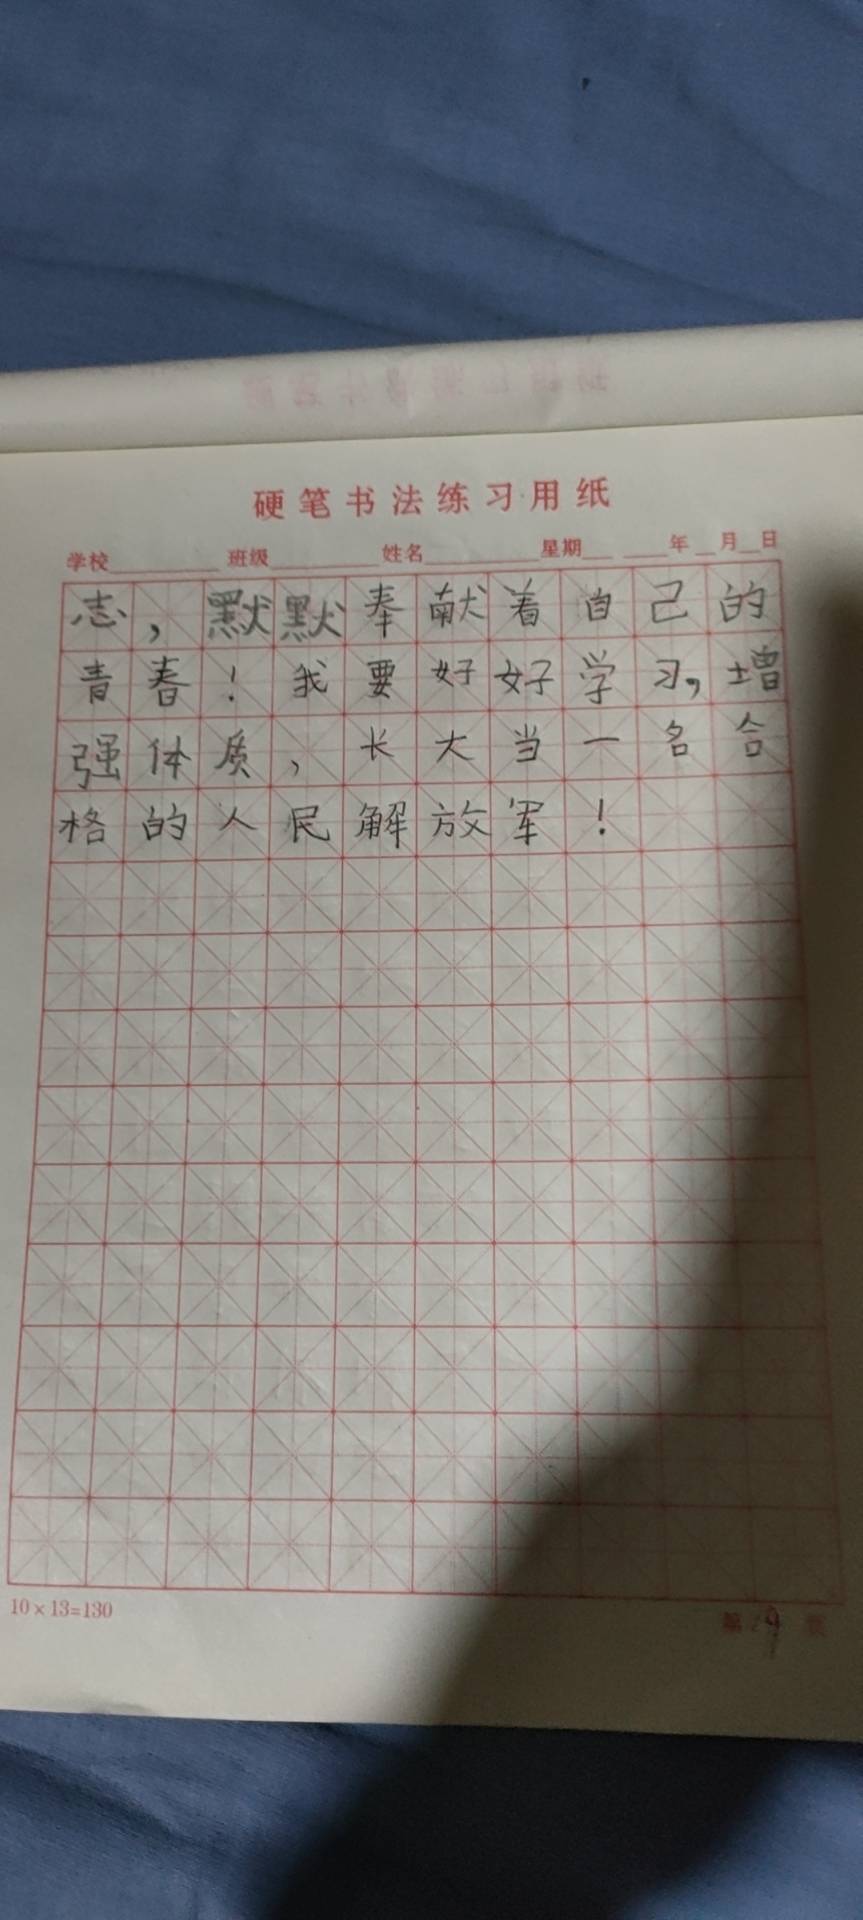 硬笔书法练习用纸
学校 班级 姓名 星期 年 月 日
志，默默奉献着自己的
青春！我要好好学习，增
强体质，长大当一名合
格的人民解放军！
10×13=130
第 页